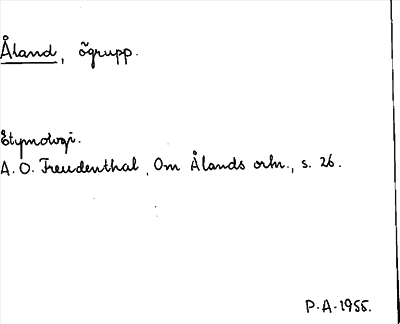 Åland, ögrupp.
Etymologi.
A. O. Freudenthal, Om Ålands ortn., s. 26.
P. A. 1955.